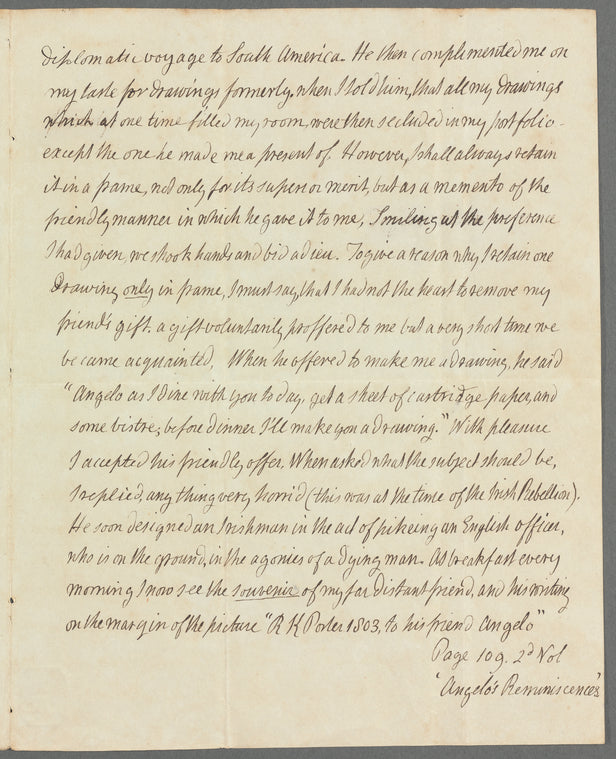 diplomatic voyage to South America. He then complimented me on
my taste for drawings formerly, when I told him, that all my drawings
which at one time filled my room, were then secluded in my portfolio -
except the one he made me a present of. However, I shall always retain
it in a frame, not only for its superior merit, but as a memento of the
friendly manner in which he gave it to me, Smiling at the preference
I had given, we shook hands and bid adieu. To give a reason why I retain one
drawing only in frame, I must say, that I had not the heart to remove my
friend's gift. a gift voluntarily proffered to me but a very short time we
became acquainted. When he offered to make me a drawing, he said
"Angelo as I dine with you to day, get a sheet of cartridge paper, and
some bistre, before dinner I'll make you a drawing." With pleasure
I accepted his friendly offer. When asked what the subject should be,
I replied, any thing very horrid (this was at the time of the Irish Rebellion).
He soon designed an Irishman in the act of pikeing an English officer,
who is on the ground, in the agonies of a dying man. At breakfast every
morning I now see the souvenir of my far distant friend, and his writing
on the margin of the picture "R K Porter 1803, to his friend Angelo"
Page 109. 2d Vol
"Angelo's Reminiscences"